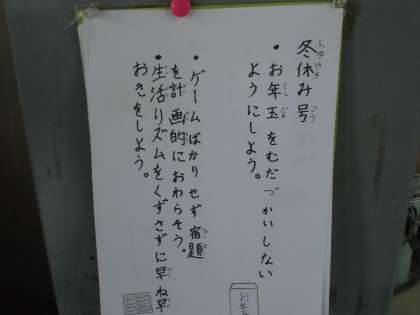 冬休み号
・お年玉をむだづかいしない
ようにしよう。
・ゲームばかりせず宿題
を計画的におわらそう。
・生活リズムをくずさずに早ね早
おきをしよう。
お年